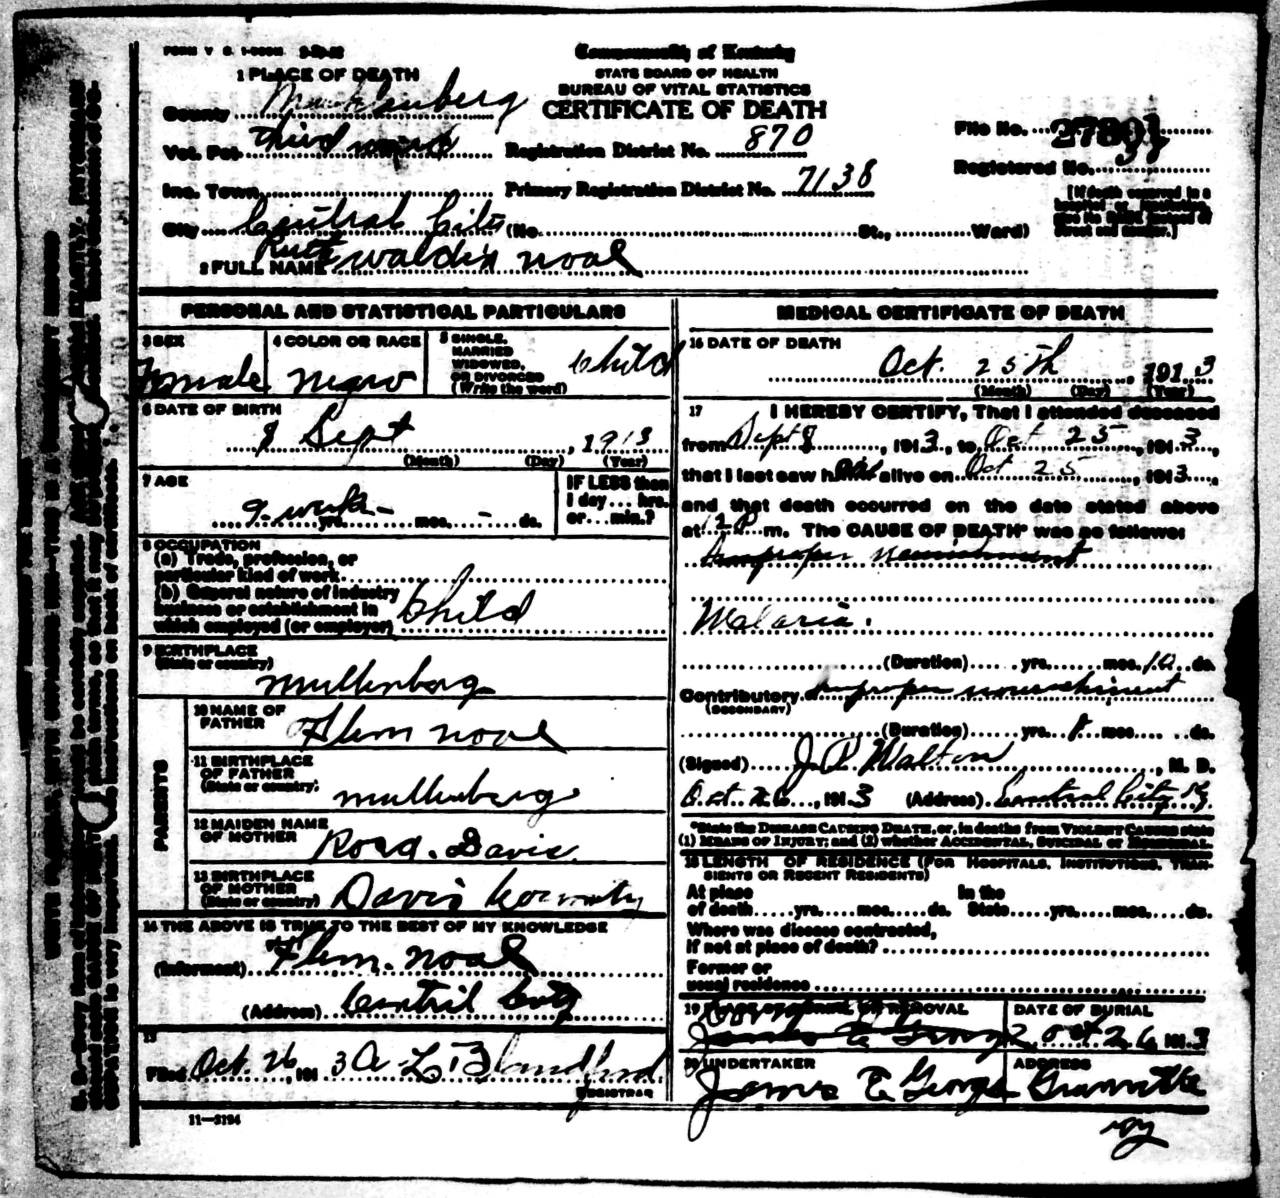 Commonwealth of Kentucky
STATE BOARD OF HEALTH
BUREAU OF VITAL STATISTICS
CERTIFICATE OF DEATH
1 PLACE OF DEATH
County Muhlenberg
Vot. Pct. Third
Registration District No. 870
File No.
Registered No.
Inc. Town
Primary Registration District No. 7138
City Central City (No. St., Ward)
[If death occurred in a
2 FULL NAME Ruth Waldin Noal
PERSONAL AND STATISTICAL PARTICULARS
3 SEX
Female
4 COLOR OR RACE
Negro
5 SINGLE,
MARRIED
WIDOWED,
OR DIVORCED
(Write the word)
Child
6 DATE OF BIRTH
8 Sept, 1913
(Month) (Day) (Year)
7 AGE
yrs. mos. - ds.
IF LESS than
1 day ... hrs.
or ... min.?
8 OCCUPATION
(a) Trade, profession, or
particular kind of work
(b) General nature of industry
business or establishment in
which employed (or employer) Child
9 BIRTHPLACE
(State or country)
Mullenberg
PARENTS
10 NAME OF
FATHER
Flem Noal
11 BIRTHPLACE
OF FATHER
(State or country)
mullenberg
12 MAIDEN NAME
OF MOTHER
Rosa. Davis
13 BIRTHPLACE
OF MOTHER
(State or country)
Davis County
14 THE ABOVE IS TRUE TO THE BEST OF MY KNOWLEDGE
(Informant) Flem. Noal
(Address) Centril City
15
Filed Oct. 26, 1913 A L Blandford
REGISTRAR
11—5194
MEDICAL CERTIFICATE OF DEATH
16 DATE OF DEATH
Oct. 25th, 1913
(Month) (Day) (Year)
17 I HEREBY CERTIFY, That I attended deceased
from Sept 8, 1913, to Oct 25, 1913,
that I last saw h alive on Oct 25, 1913,
and that death occurred on the date stated above
at 12 P m. The CAUSE OF DEATH* was as follows:
Improper nourishment
Malaria.
(Duration) yrs. mos. 10 ds.
Contributory Improper nourishment
(SECONDARY)
(Duration) yrs. mos. ds.
(Signed) J P Walton, M. D.
Oct. 26, 1913 (Address) Central City Ky.
*State the DISEASE CAUSING DEATH, or, in deaths from VIOLENT CAUSES state
(1) MEANS OF INJURY; and (2) whether ACCIDENTAL, SUICIDAL or HOMICIDAL.
18 LENGTH OF RESIDENCE (FOR HOSPITALS, INSTITUTIONS, TRANSIENTS OR RECENT RESIDENTS)
At place
of death yrs. mos. ds.
In the
State yrs. mos. ds.
Where was disease contracted,
if not at place of death?
Former or
usual residence
19 PLACE OF BURIAL OR REMOVAL
James E George
DATE OF BURIAL
Oct 26 1913
20 UNDERTAKER
James E George
ADDRESS
Ky